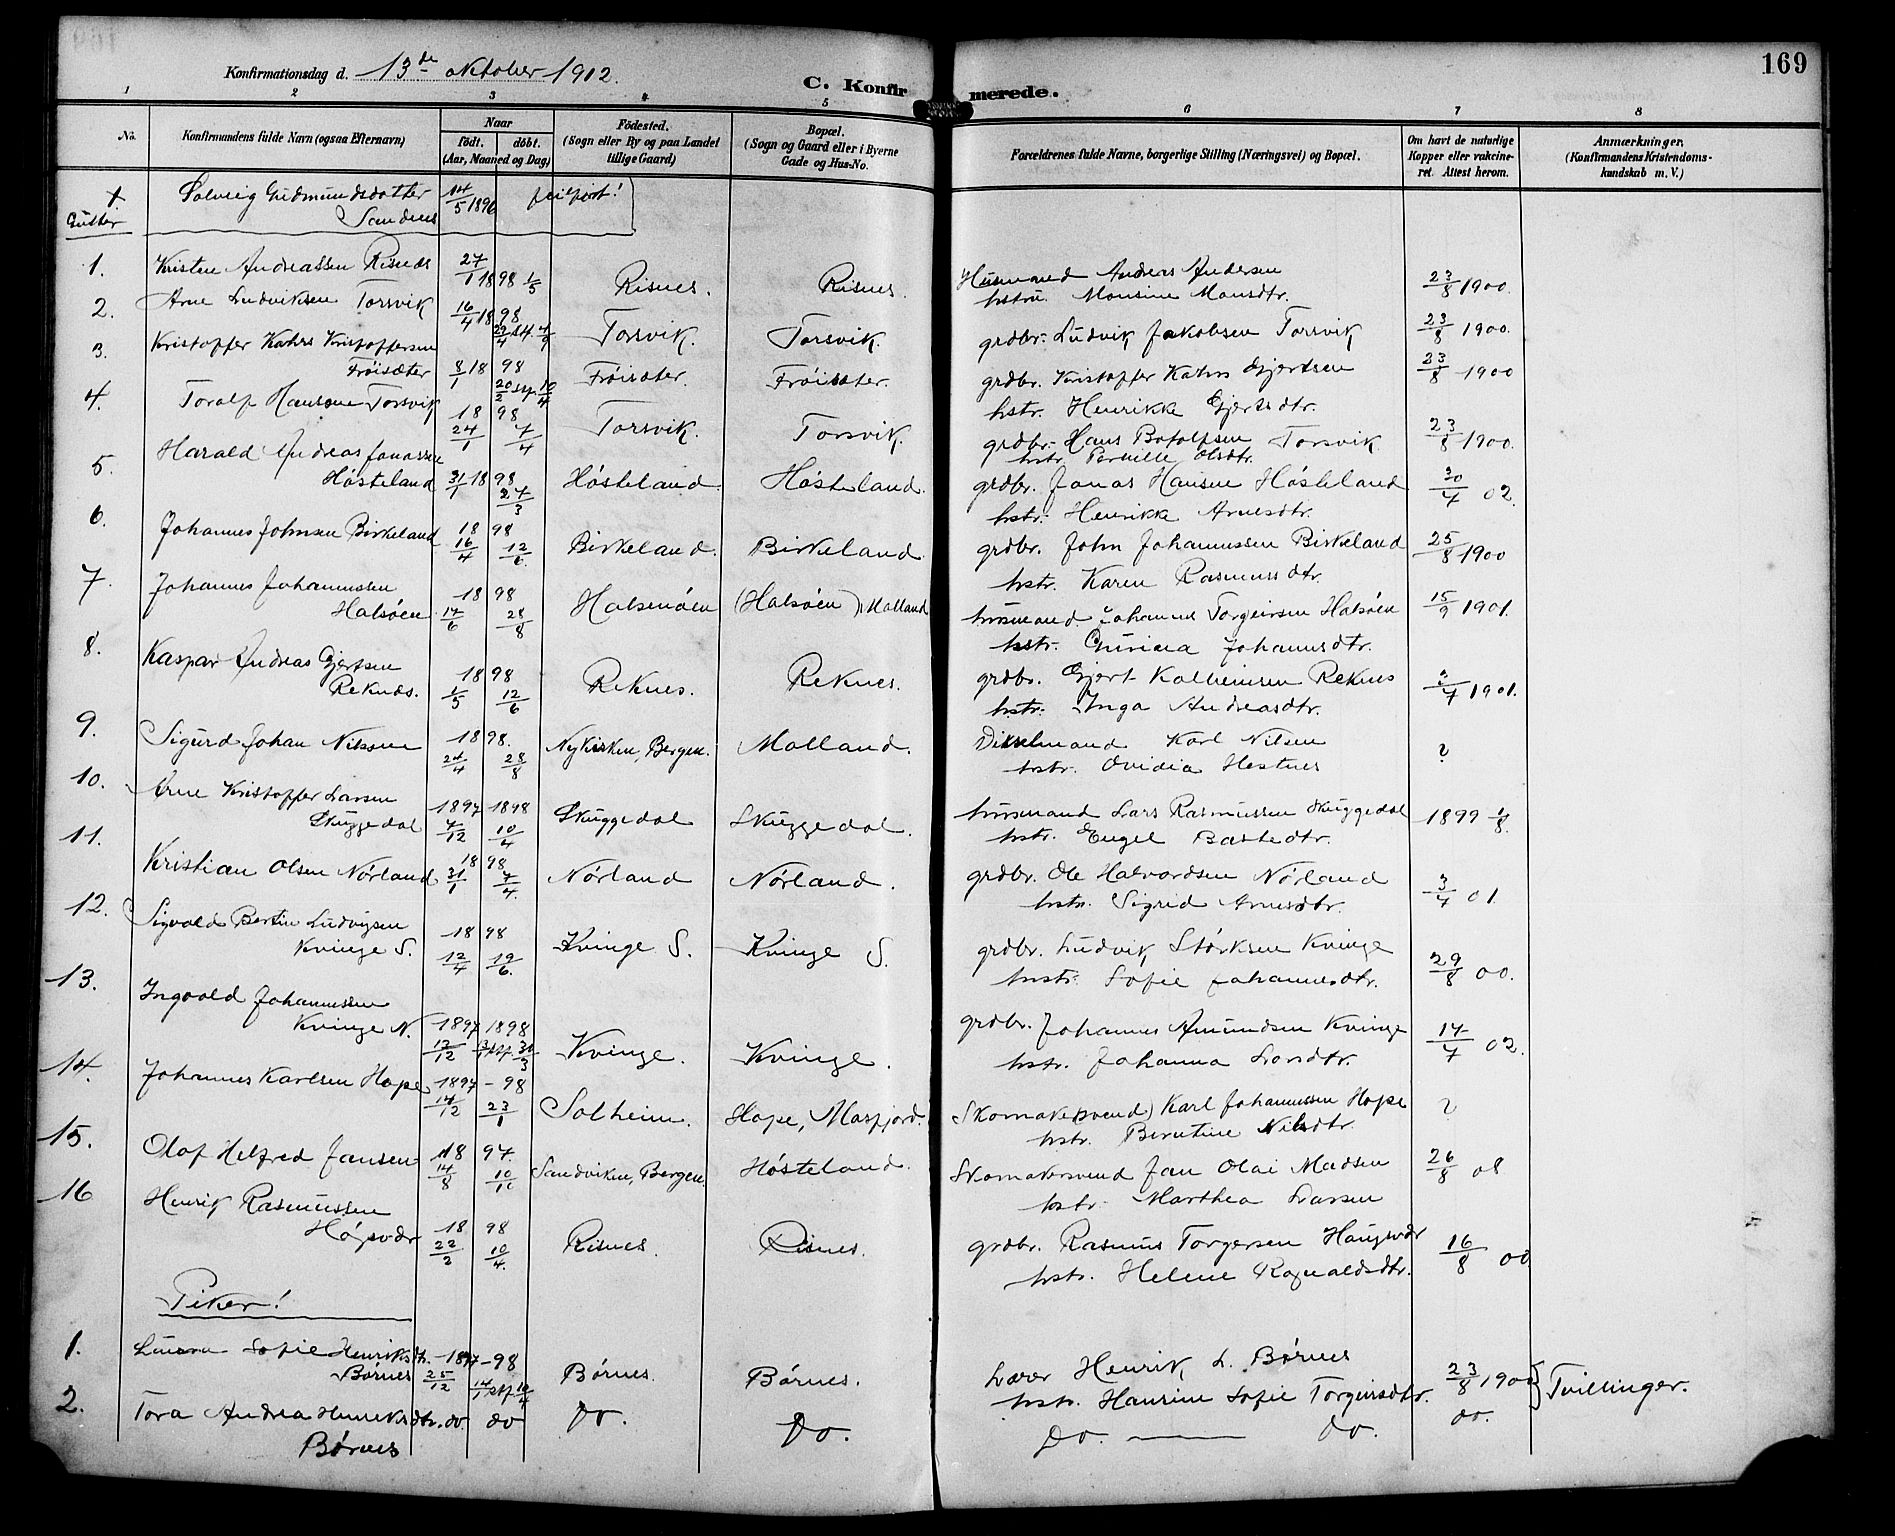 169
Konfirmationsdag d. 13de oktober 1912.
C. Konfirmerede.
1 2 3 4 5 6 7 8
No. Konfirmandens fulde Navn (ogsaa Efternavn) Naar født. døbt. (Aar, Maaned og Dag) Fødested. (Sogn eller By og paa Landet tillige Gaard) Bopæl. (Sogn og Gaard eller i Byerne Gade og Hus-No. Forældrenes fulde Navne, borgerlige Stilling (Næringsvei) og Bopæl. Om havt de naturlige Kopper eller vakcineret. Attest herom. Anmærkninger. (Konfirmandens Kristendomskundskab m. V.)
Solveig Gudmundsdotter 14/5 1896 feilført!
Sandnes
Gutter
1. Kristen Andreassen Risnes 27/1 1898 1/5 Risnes. Risnes. Husmand Andreas Andersen 23/8 1900.
hstru. Monsine Monsdtr.
2. Arne Ludviksen Torsvik 16/4 1898 Torsvik. Torsvik. grdbr. Ludvik Jakobsen Torsvik 23/8 1900.
3. Kristoffer Kahrs Kristoffersen
Frøisæter 8/1 1898 20/2 stf. 10/4 Frøisæter. Frøisæter. grdbr. Kristoffer Kahrs Gjertsen 23/8 1900
hstr. Henrikka Gjertsdtr.
4. Toralf Hansen Torsvik 1898 24/1 7/4 Torsvik. Torsvik. grdbr. Hans Botolfsen Torsvik 23/8 1900.
hstr. Pernille Olsdtr.
5. Harald Andreas Jonassen
Høsteland 31/1 1898 27/3 Høsteland. Høsteland. grdbr. Jonas Hansen Høsteland 30/4 02.
hstr. Henrikka Arnesdtr.
6. Johannes Johnsen Birkeland 1898 16/4 12/6. Birkeland. Birkeland. grdbr. John Johannessen Birkeland 25/8 1900
hstr. Karen Rasmusdtr.
7. Johannes Johannessen 1898
Halsøen 17/6 28/8 Halsenøen (Halsøen) Molland husmand Johannes Torgeirsen Halsøen 15/9 1901.
hstr. Johannesdtr.
8. Kaspar Andreas Gjertsen 1898
Reknes. 1/5 12/6 Reknes. Reknes. grdbr. Gjert Reknes 3/7 1901.
hstr. Inga Andreasdtr.
9. Sigurd Johan Nilssen 1898. 24/4 28/8 Nykirken, Bergen. Molland. Karl Nilsen ?
hstr. Ovidia Hestnes
10. Arne Kristoffer Larsen 1897 1898
Skuggedal 7/12 10/4 Skuggedal Skuggedal. husmand Lars Rasmussen Skuggedal 1899 1/8.
hstr. Engel Bastedtr.
11. Kristian Olsen Nørland 1898 31/1 7/4. Nørland Nørland. grdbr. Ole Halvordsen Nørland 3/4 01
hstr. Sigrid Arnesdtr.
12. Sigvald Bertin Ludvigsen 1898
Kvinge S. 12/4 19/6. Kvinge S. Kvinge S. grdbr. Ludvik Størksen Kvinge 29/8 00.
hstr. Sofie Johannesdtr.
13. Ingvald Johannessen
Kvinge N. 1897 1898 Kvinge. Kvinge. grdbr. Johannes Amundsen Kvinge 14/7 02.
hstr. Johanna Larsdtr.
14. Johannes Karlsen Hope 1897 - 98 14/12 23/1 Solheim. Hope, Masfjord. Skomakersvend Karl Johannessen Hope ?
hstr. Berntine Nilsdtr.
15. Olaf Helfred Jansen 1897. 14/8 10/10 Sandviken, Bergen. Høsteland. Skomakersvend Jan Olai Madsen 26/8 08
hstr. Marthea Larsen
16 Henrik Rasmussen
Høgsvær 1898 22/2 10/4. Risnes. Risnes. grdbr. Rasmus Torgersen Haugsvær 16/8 00
hstr. Helene Ragnaldsdtr.
Piker!
1. Laura Sofie Henriksdtr. 1897-98
Børnes 25/12 14/1 stf. 10/4 Børnes. Børnes. Lærer Henrik L. Børnes 23/8 1900 } Tvillinger.
hstr. Hansine Sofie Torgeirsdtr.
2. Tora Andrea Henriksdtr. do. do Do. Do. Do. do. do.
Børnes